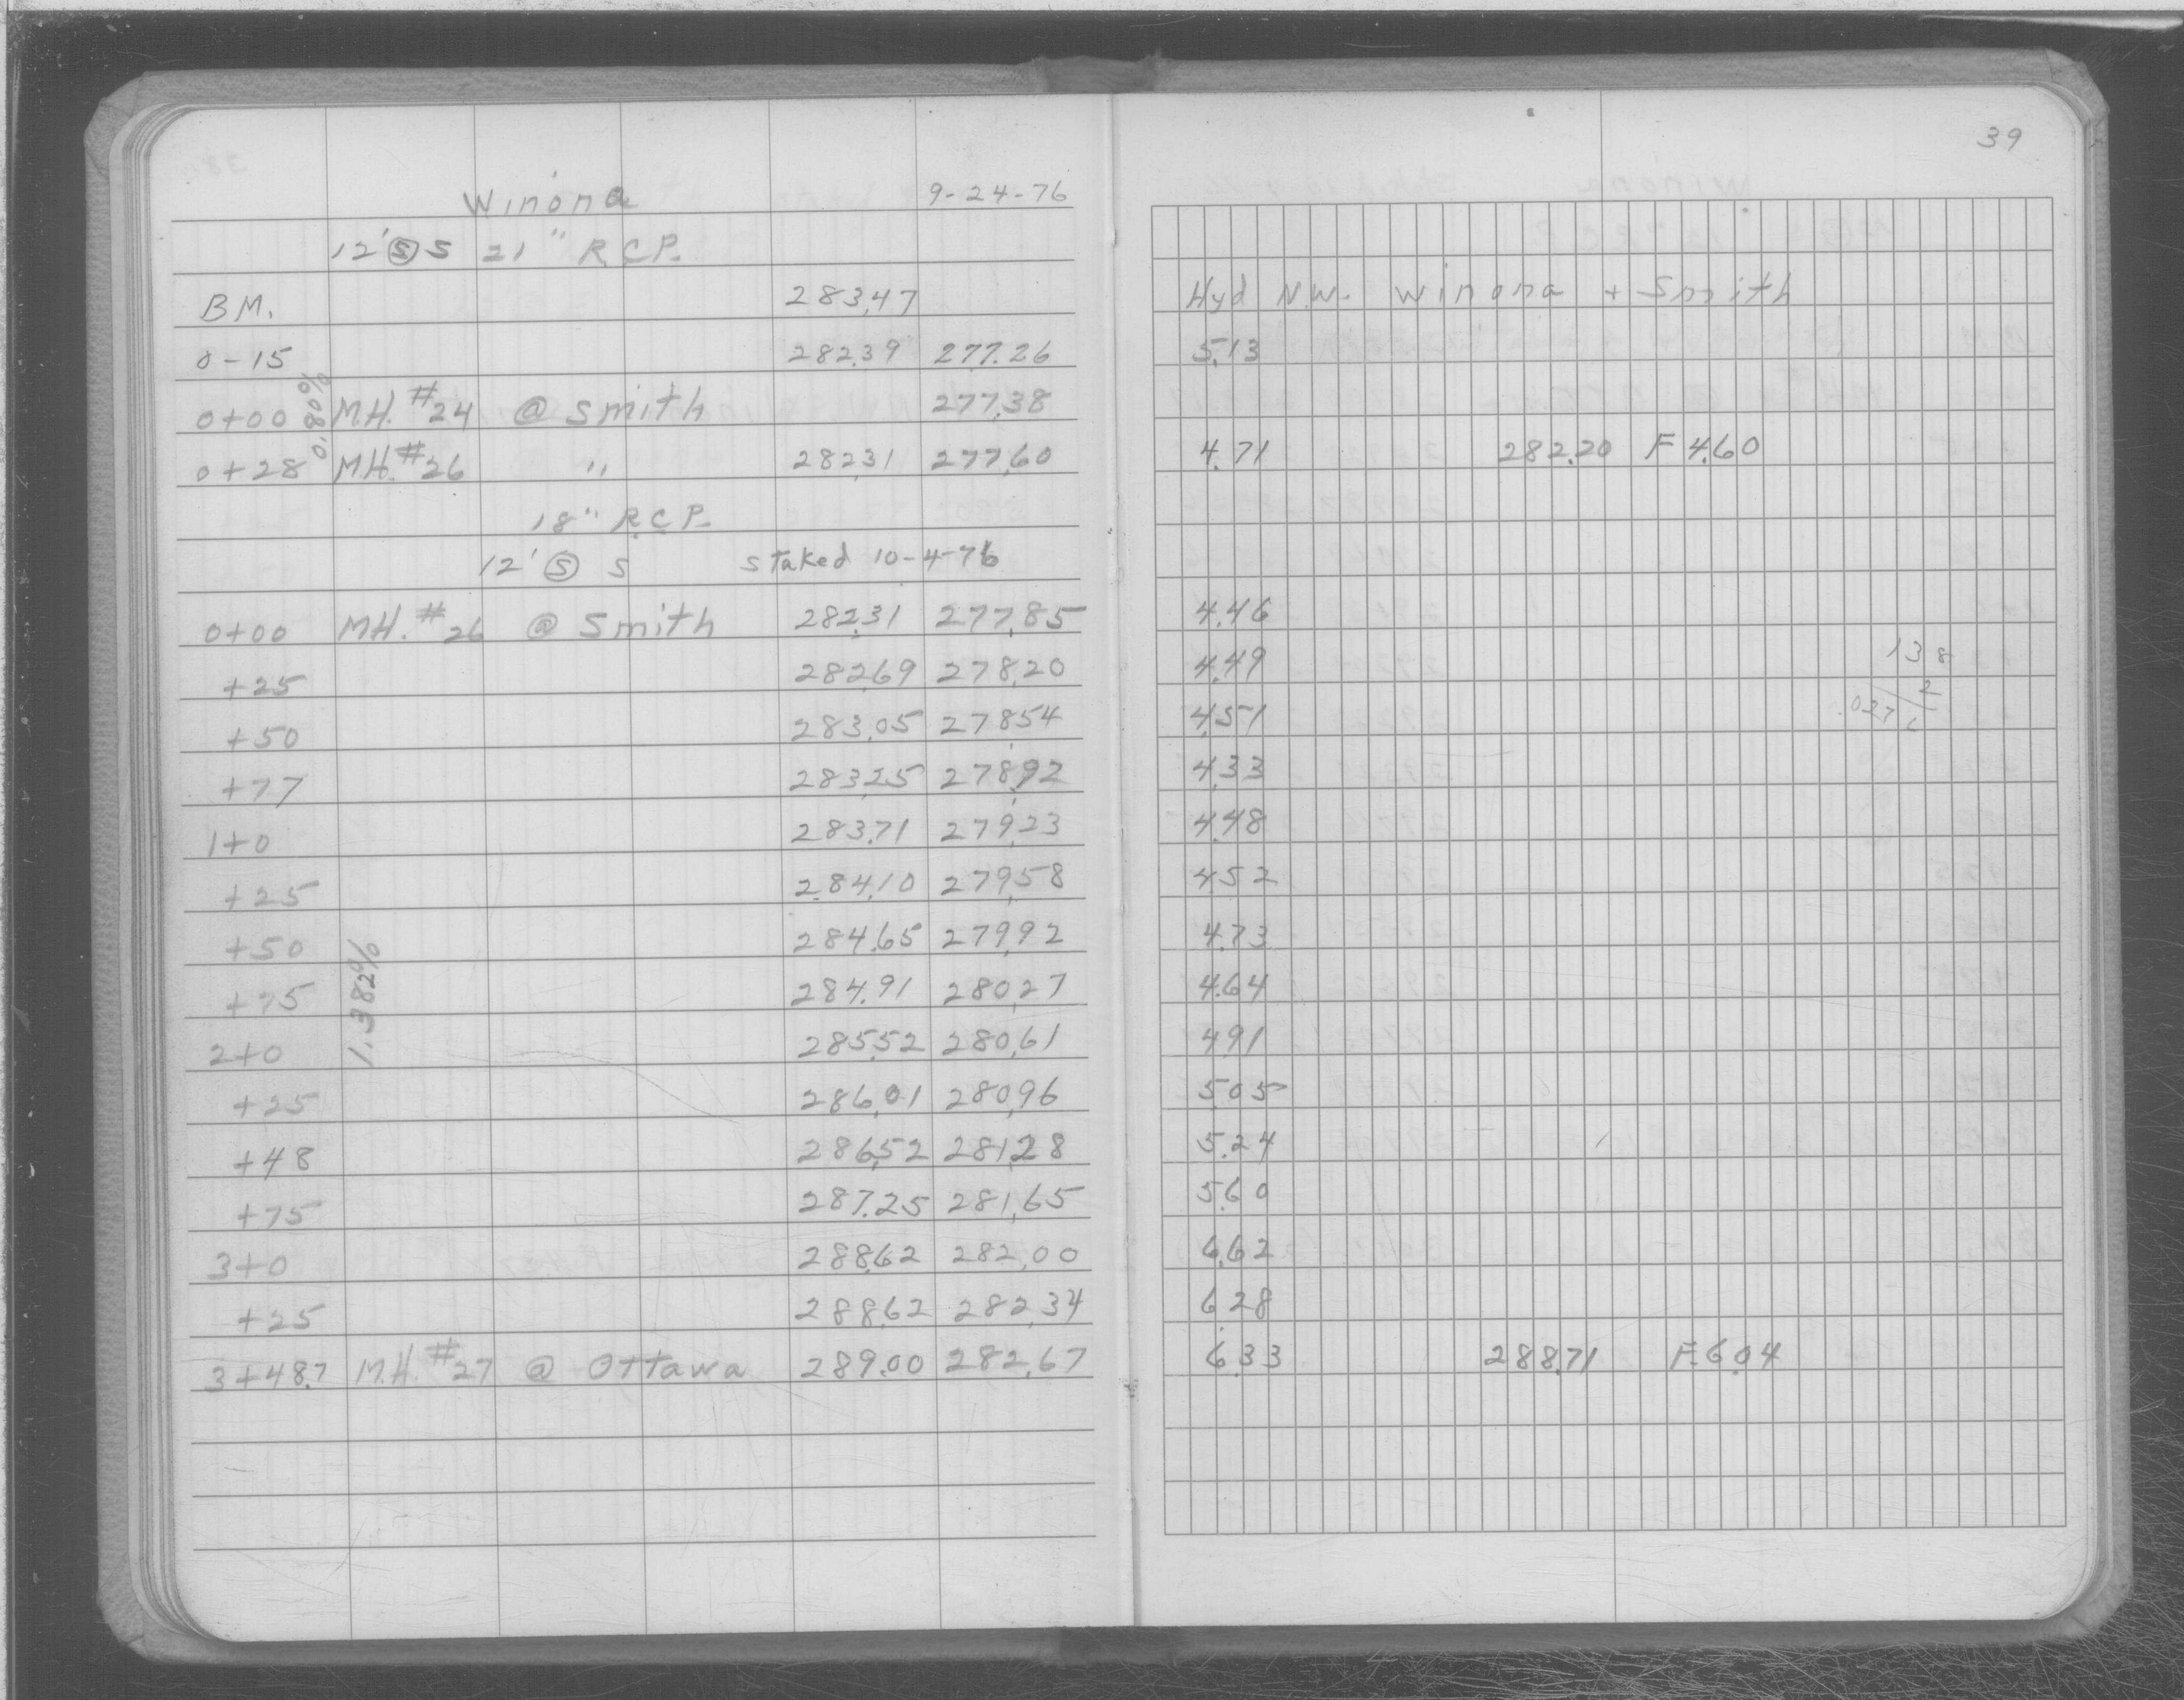 39
Winona 9-24-76
12' Ⓢ S 21" R.C.P.
B.M. 283.47 Hyd N.W. Winona + Smith
0-15 282.39 277.26 5.13
0.80%
0+00 M.H. #24 @ Smith 277.38
0+28 M.H. #26 " 282.31 277.60 4.71 282.20 F 4.60
18" R.C.P.
12' Ⓢ S staked 10-4-76
0+00 M.H. #26 @ Smith 282.31 277.85 4.46
+25 282.69 278.20 4.49 138
+50 283.05 278.54 4.51
+77 283.25 278.92 4.33
1+0 283.71 279.23 4.48
+25 284.10 279.58 4.52
+50 284.65 279.92 4.73
1.382%
+75 284.91 280.27 4.64
2+0 285.52 280.61 4.91
+25 286.01 280.96 5.05
+48 286.52 281.28 5.24
+75 287.25 281.65 5.60
3+0 288.62 282.00 6.62
+25 288.62 282.34 6.28
3+48.7 M.H. #27 @ Ottawa 289.00 282.67 6.33 288.71 F 6.04